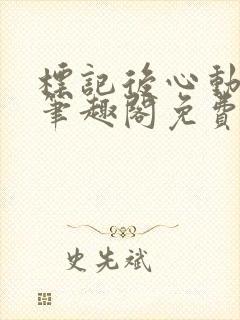 標記後心動
筆趣閣免費
史先斌